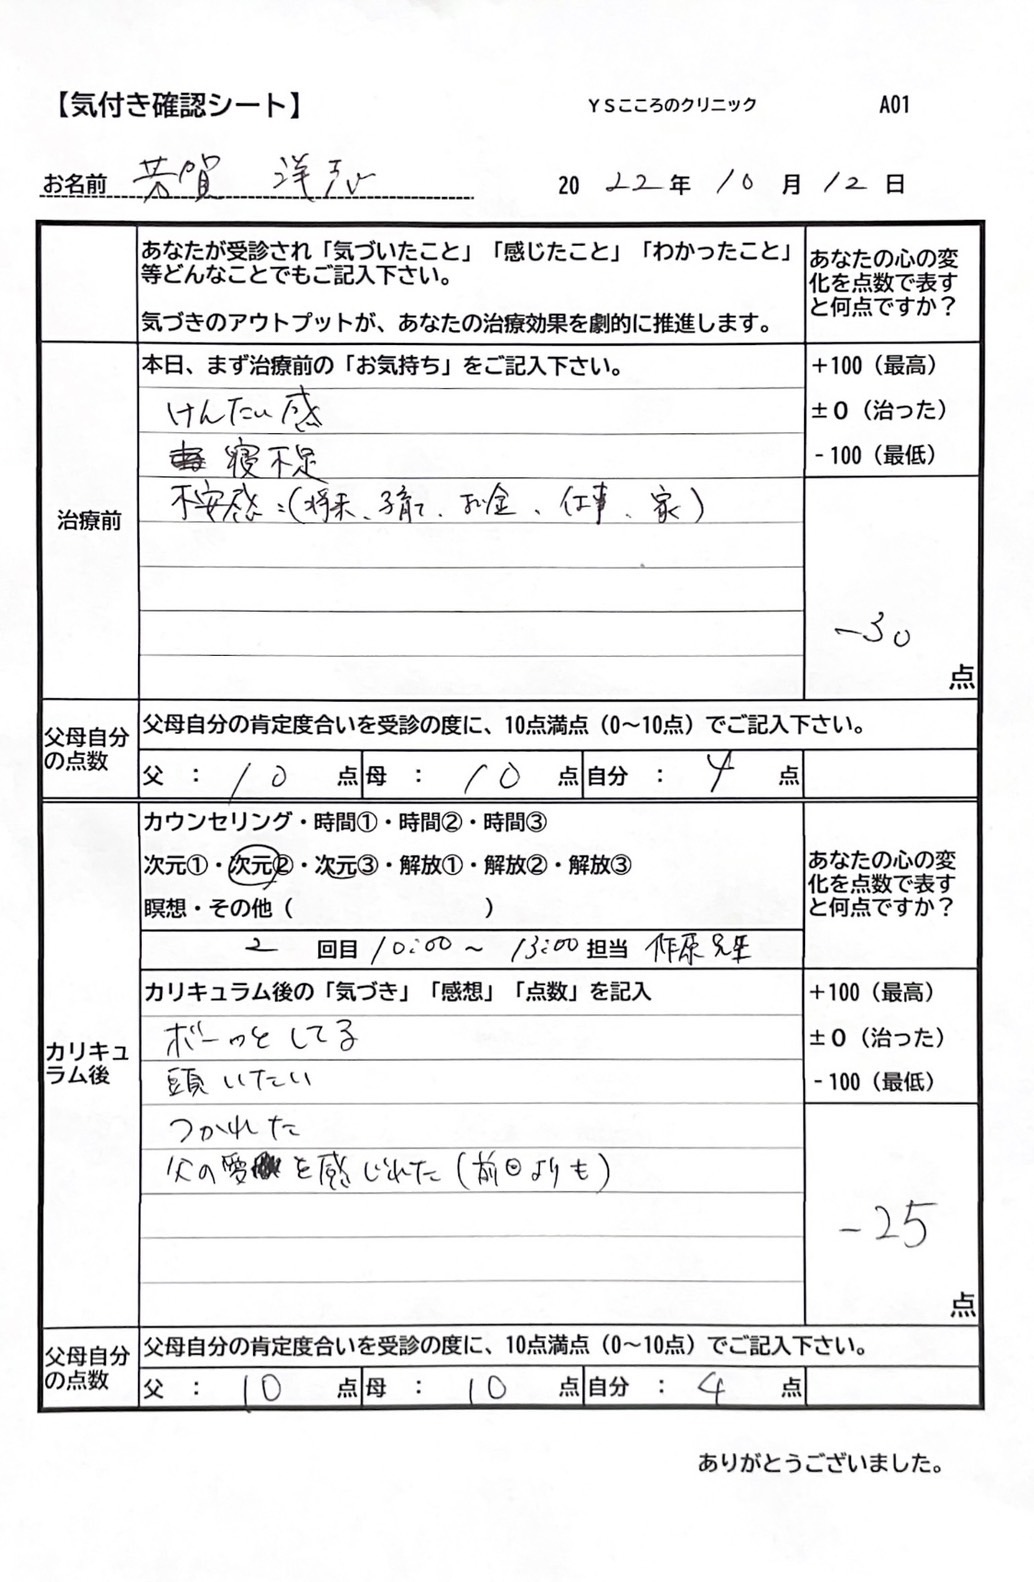 【気付き確認シート】 YSこころのクリニック A01
お名前 芳賀 洋 2022年10月12日
あなたが受診され「気づいたこと」「感じたこと」「わかったこと」
等どんなことでもご記入下さい。
気づきのアウトプットが、あなたの治療効果を劇的に推進します。
あなたの心の変
化を点数で表す
と何点ですか？
治療前
本日、まず治療前の「お気持ち」をご記入下さい。
けんたい感
寝不足
不安感：(将来、子育て、お金、仕事、家)
+100（最高）
±0（治った）
-100（最低）
-30
点
父母自分
の点数
父母自分の肯定度合いを受診の度に、10点満点（0～10点）でご記入下さい。
父 ： 10 点 母 ： 10 点 自分 ： 4 点
カウンセリング・時間①・時間②・時間③
次元①・次元②・次元③・解放①・解放②・解放③
瞑想・その他（ ）
2 回目 10:00 ～ 13:00 担当 作原先生
あなたの心の変
化を点数で表す
と何点ですか？
カリキュ
ラム後
カリキュラム後の「気づき」「感想」「点数」を記入
ボーッとしてる
頭いたい
つかれた
父の愛を感じれた(前回よりも)
+100（最高）
±0（治った）
-100（最低）
-25
点
父母自分
の点数
父母自分の肯定度合いを受診の度に、10点満点（0～10点）でご記入下さい。
父 ： 10 点 母 ： 10 点 自分 ： 4 点
ありがとうございました。